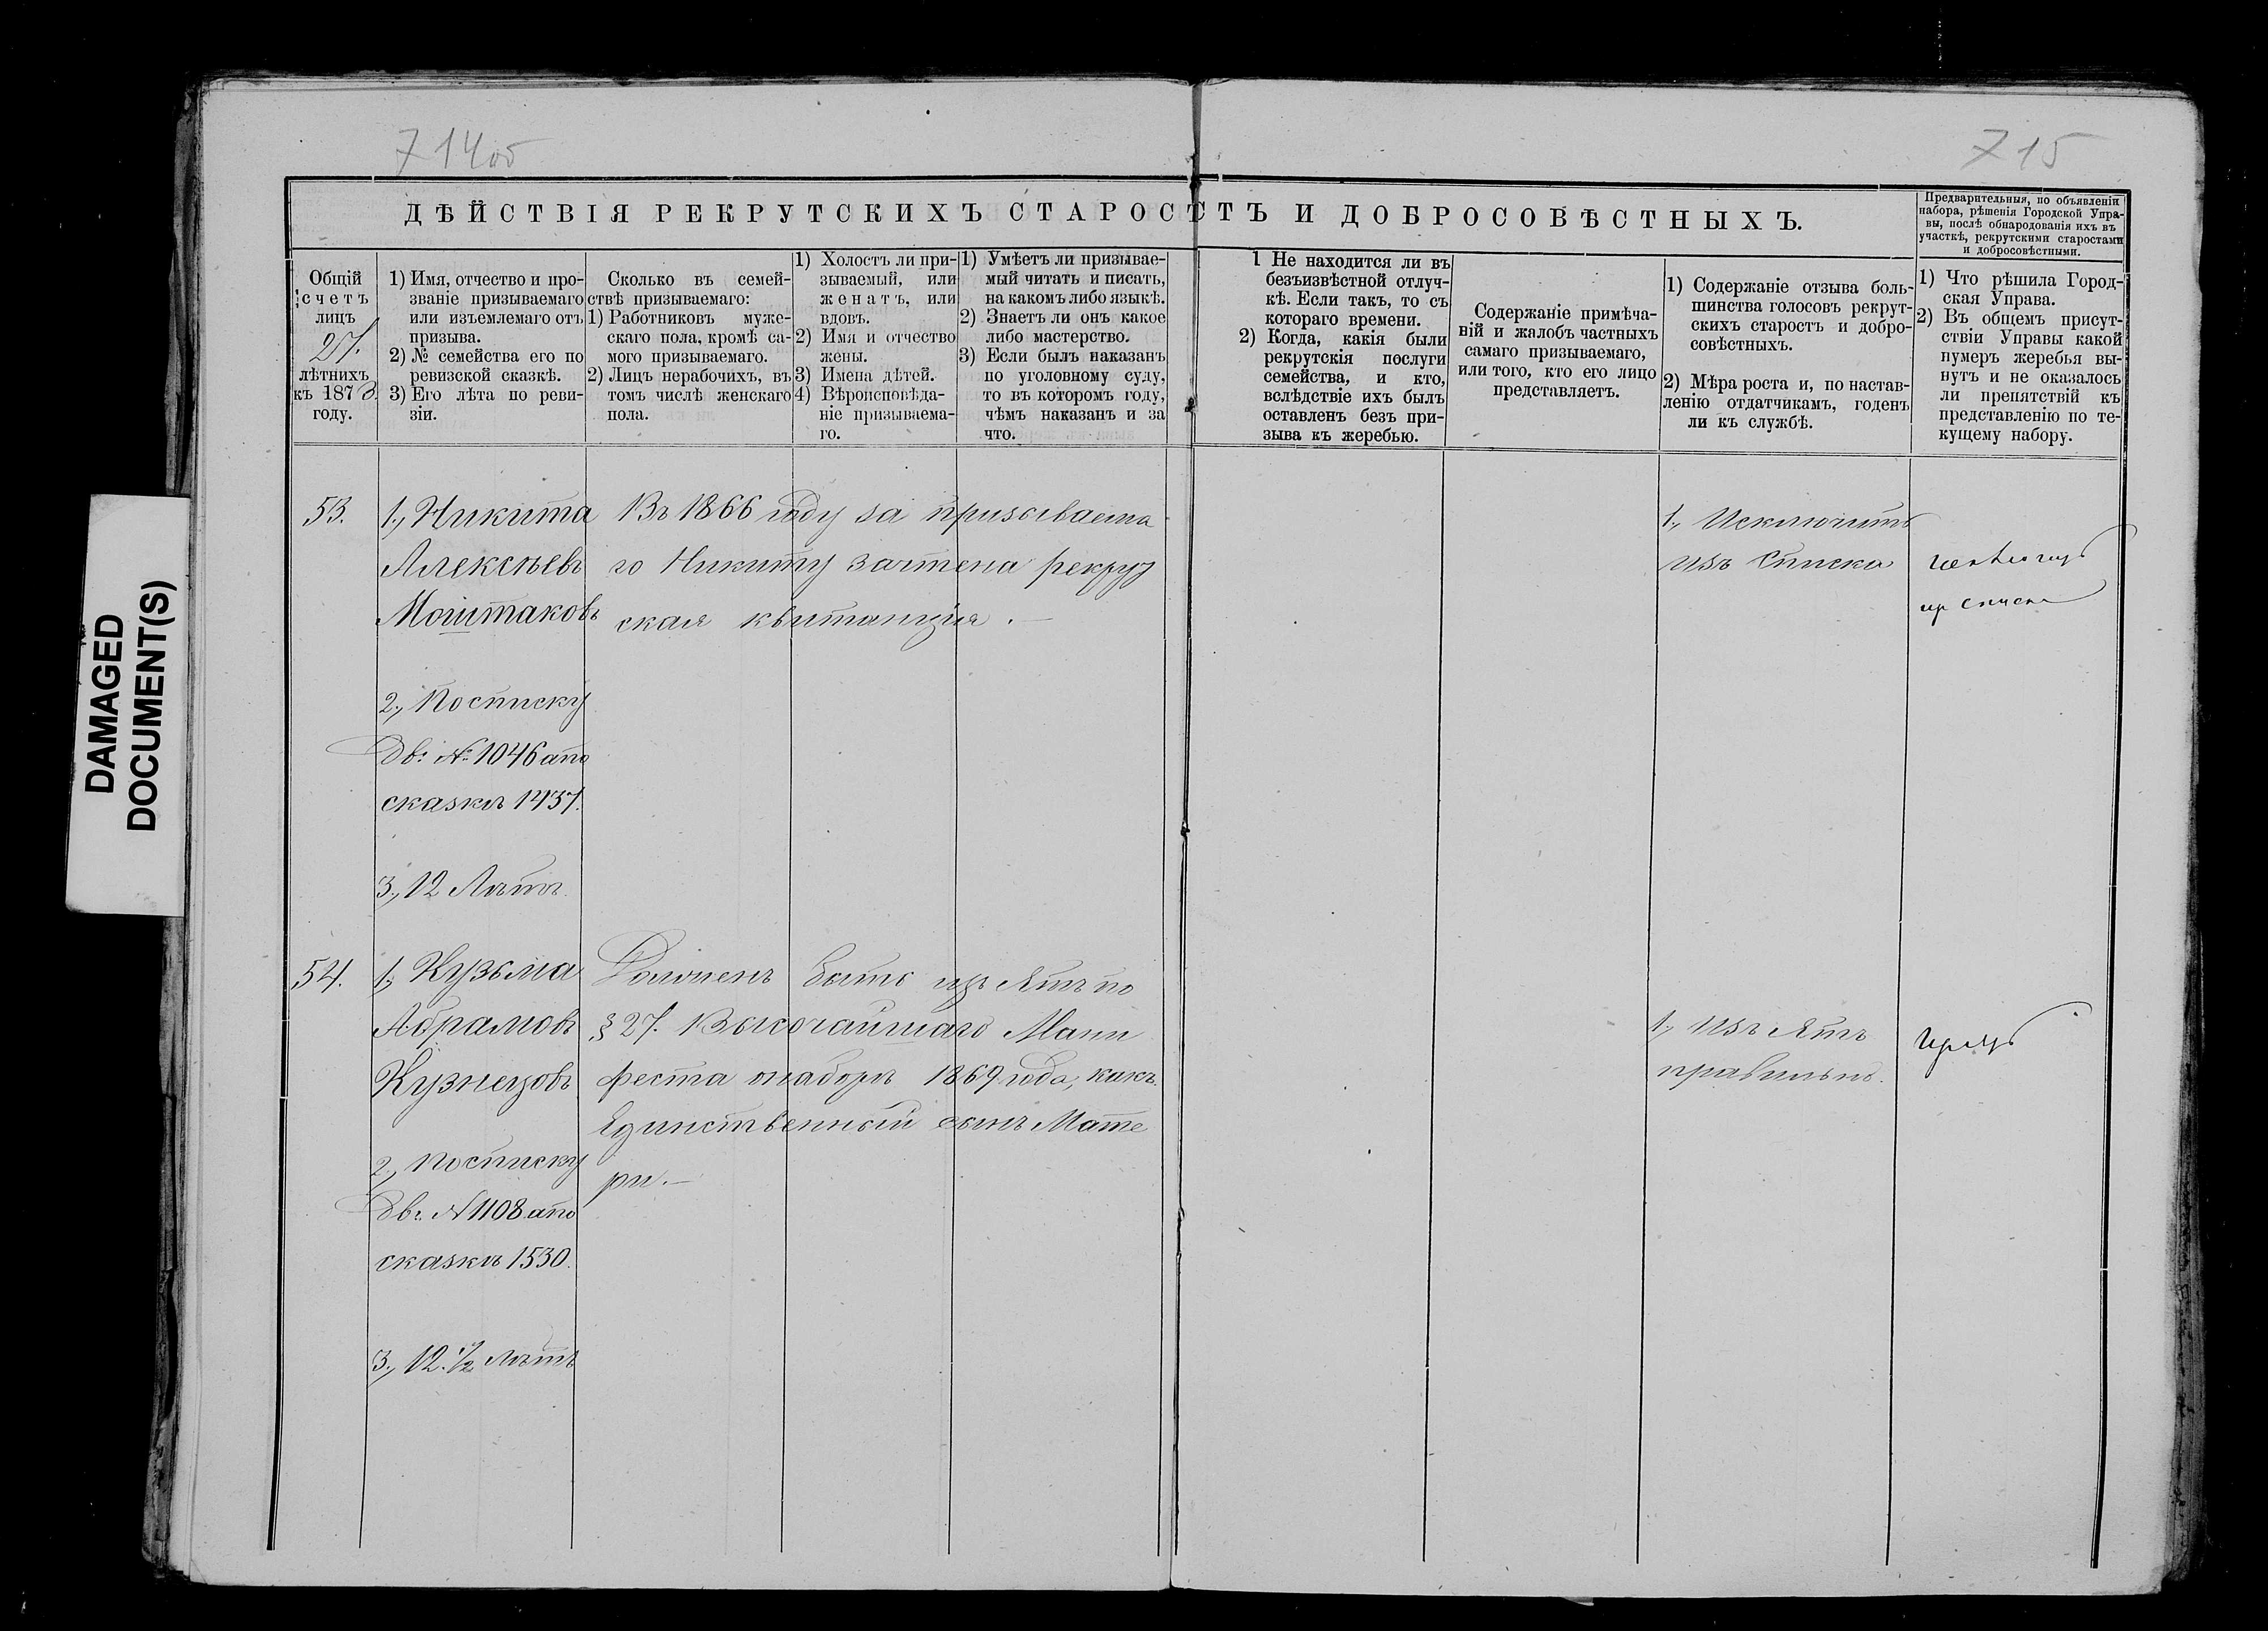 714об
715
ДѢЙСТВІЯ РЕКРУТСКИХЪ СТАРОСТЪ И ДОБРОСОВѢСТНЫХЪ.
Предварительныя, по объявленіи
набора, рѣшенія Городской Упра-
вы, послѣ обнародованія ихъ въ
участкѣ, рекрутскими старостами
и добросовѣстными.
Общій
счетъ
лицъ
27.
лѣтнихъ
къ 1873.
году.
1) Имя, отчество и про-
званіе призываемаго
или изъемлемаго отъ
призыва.
2) № семейства его по
ревизской сказкѣ.
3) Его лѣта по реви-
зіи.
Сколько въ семей-
ствѣ призываемаго:
1) Работниковъ муже-
скаго пола, кромѣ са-
мого призываемаго.
2) Лицъ нерабочихъ, въ
томъ числѣ женскаго
пола.
1) Холостъ ли при-
зываемый, или
женатъ, или
вдовъ.
2) Имя и отчество
жены.
3) Имена дѣтей.
4) Вѣроисповѣда-
ніе призываема-
го.
1) Умѣетъ ли призывае-
мый читать и писать,
на какомъ либо языкѣ.
2) Знаетъ ли онъ какое
либо мастерство.
3) Если былъ наказанъ
по уголовному суду,
то въ которомъ году,
чѣмъ наказанъ и за
что.
1 Не находится ли въ
безъизвѣстной отлуч-
кѣ. Если такъ, то съ
котораго времени.
2) Когда, какія были
рекрутскія послуги
семейства, и кто,
вслѣдствіе ихъ былъ
оставленъ безъ при-
зыва къ жеребью.
Содержаніе примѣча-
ній и жалобъ частныхъ
самаго призываемаго,
или того, кто его лицо
представляетъ.
1) Содержаніе отзыва боль-
шинства голосовъ рекрут-
скихъ старостъ и добро-
совѣстныхъ.
2) Мѣра роста и, по настав-
ленію отдатчикамъ, годенъ
ли къ службѣ.
1) Что рѣшила Город-
ская Управа.
2) Въ общемъ присут-
ствіи Управы какой
нумеръ жеребья вы-
нутъ и не оказалось
ли препятствій къ
представленію по те-
кущему набору.
53.
1., Никита
Алексѣевъ
Моштаковъ
2., По списку
дв: № 1046 а по
сказкѣ 1437.
3., 12 Лѣтъ.
Въ 1866 году за призываема
го Никиту зачтена рекрут
ская квитанція.—
1., Исключить
изъ Списка
54.
1., Кузьма
Абрамовъ
Кузнецовъ
2., По списку
дв. № 1108 а по
сказкѣ 1530.
3., 12. ½ лѣтъ
Долженъ быть изъятъ по
§ 27. Высочайшаго Мани
феста о наборѣ 1869 года, какъ
Единственный сынъ Мате
ри.—
1., Изъятъ
правильно.
DAMAGED
DOCUMENT(S)